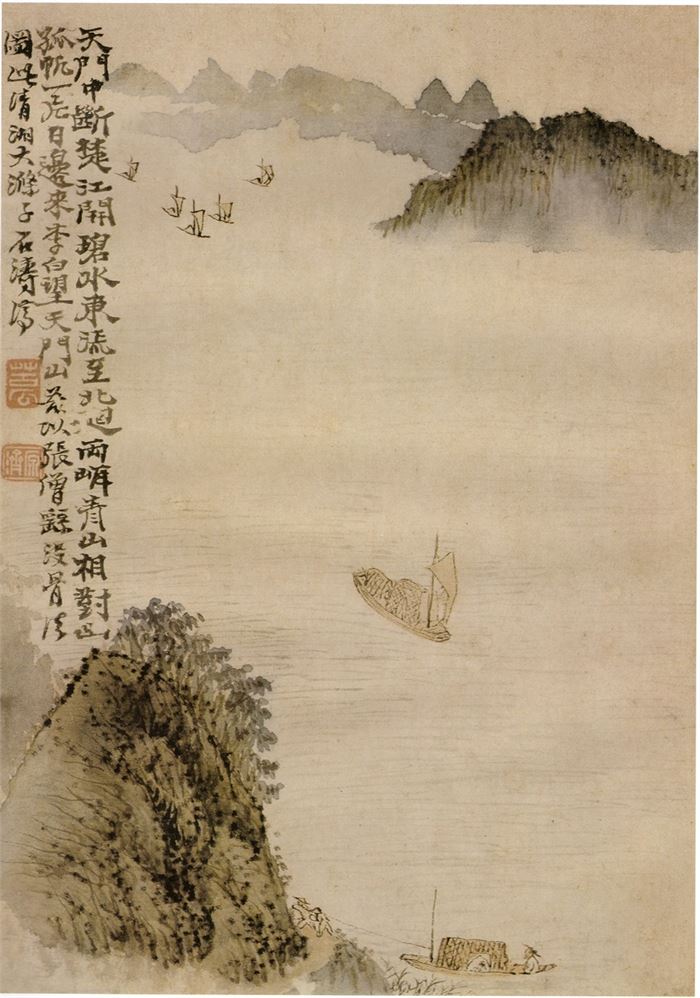 天門中斷楚江開碧水東流至北迴兩岸青山相對出
孤帆一片日邊來李白望天門山茲以張僧繇没骨法
圖此清湘大滌子石濤濟
苦瓜
原濟